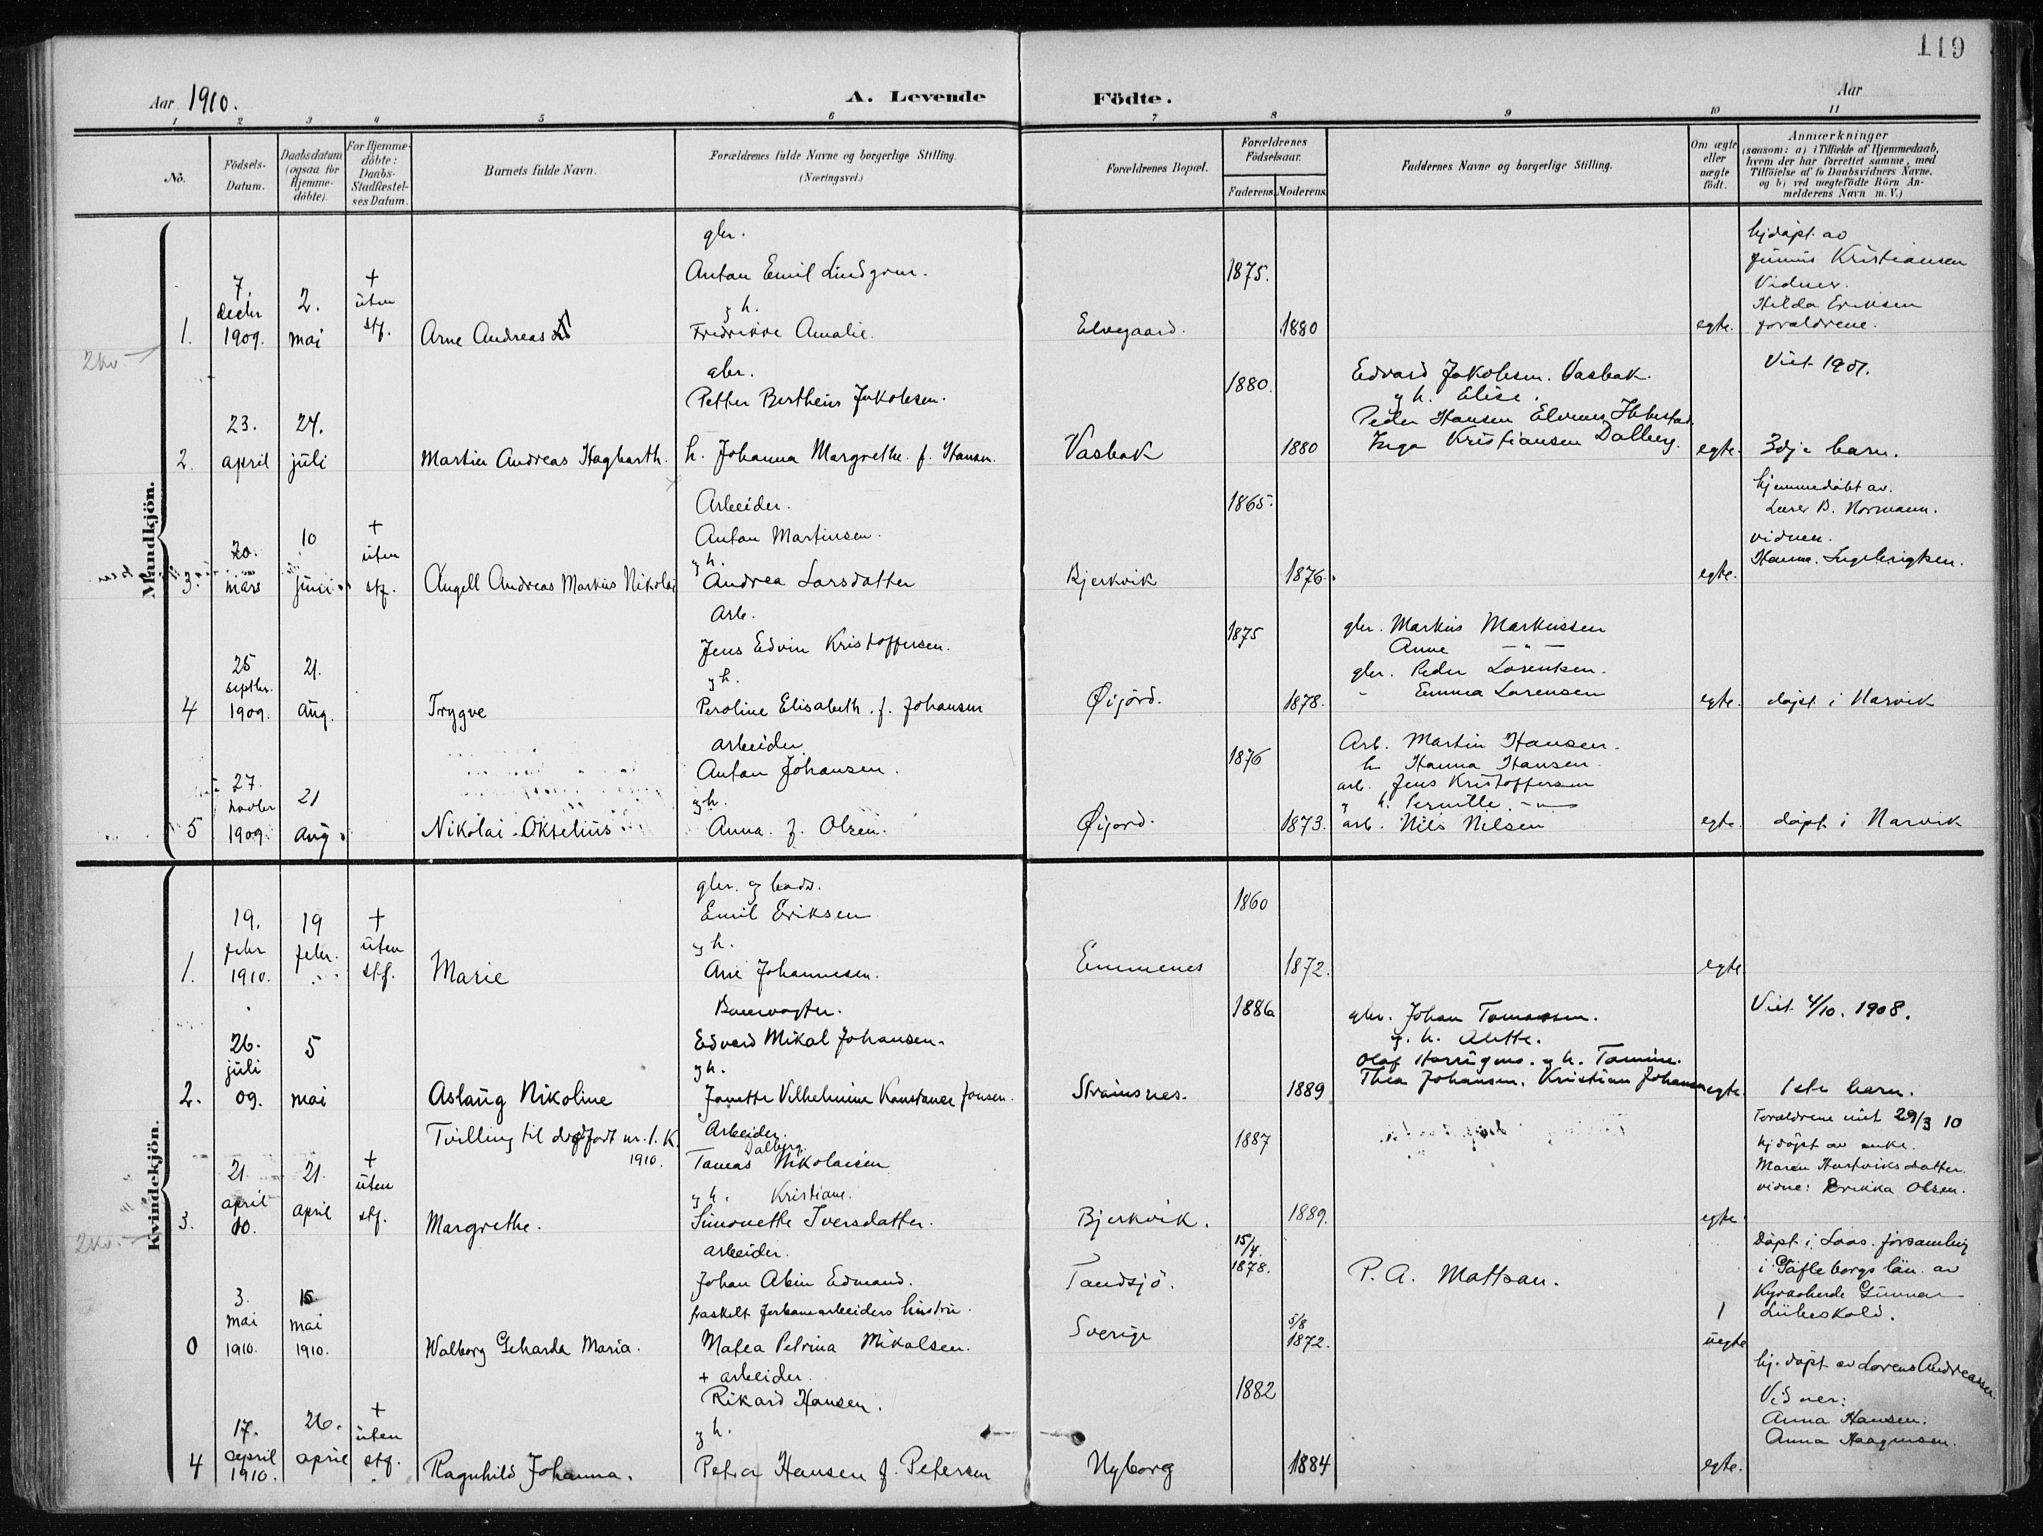 119
Aar 1910. A. Levende Fødte. Aar
1 2 3 4 5 6 7 8 9 10 11
No.
Födsels-Datum.
Daabsdatum (ogsaa for Hjemmedöbte).
For Hjemmedöbte: Daabs-Stadfæstelses Datum.
Barnets fulde Navn.
Forældrenes fulde Navne og borgerlige Stilling. (Næringsvei.)
Forældrenes Bopæl.
Forældrenes Födselsaar.
Faderens. Moderens.
Faddernes Navne og borgerlige Stilling.
Om ægte eller uægte födt.
Anmærkninger (saasom: a) i Tilfælde af Hjemmedaab, hvem der har forrettet samme, med Tilföielse af to Daabsvidners Navne, og b) ved uægtefödte Börn Anmelderens Navn m. V.)
Mandkjön.
2kv.
1.
7. decbr 1909.
2. mai
+ uten stf.
Arne Andreas
gbr.
Anton Emil Lindgren.
g h.
Fredrikke Amalie.
Elvegaard.
1875.
1880
egte.
hjdøpt av
Junius Kristiansen
Vidner.
Hilda Eriksen
forældrene.
2.
23. april
24. juli
Martin Andreas Hagbarth.
gbr.
Petter Bertheus Jakobsen.
h. Johanna Margrethe. f. Hansen.
Vasbak
1880.
1880
Edvard Jakobsen. Vasbak.
g h. Elise.
Peder Hansen Elvenes Ibbestad.
Inga Kristiansen Dalberg.
egte.
Viet 1901.
3dje barn.
3.
20. mars
10 juni
+ uten stf.
Angell Andreas Markus Nikolai
Arbeider.
Anton Martinsen.
g h.
Andrea Larsdatter
Bjerkvik
1865.
1876.
egte.
hjemmedøbt av.
Lærer B. Normann.
vidner.
Hanna. Ingebrigtsen.
4
25 septbr. 1909.
21. aug.
Trygve
Arb.
Jens Edvin Kristoffersen.
g h.
Peroline Elisabeth. f. Johansen
Øijord.
1875
1878.
gbr. Markus Markussen
Anne — " —
gbr. Peder Lorentsen.
" Emma Lorensen
egte.
døpt i Narvik
5
27. novbr 1909.
21 aug.
Nikolai Okselius
arbeider
Anton Johansen.
g h.
Anna. f. Olsen.
Øijord.
1876
1873.
Arb. Martin Hansen.
h Hanna Hansen.
arb. Jens Kristoffersen
g h. Pernille. — " —
arb. Nils Nilsen
egte.
døpt i Narvik
Kvindekjön.
1.
19. febr 1910.
19 febr.
+ uten stf.
Marie
gbr. g
Emil Eriksen
g h.
Ane Johannesen.
Emmenes
1860
1872.
egte.
2.
26. juli 09.
5 mai
Aslaug Nikoline
Banevogter.
Edvard Mikal Johansen.
g h.
Janette Vilhelmine Konstance Jonsen.
Straumsnes.
1886
1889
gbr. Johan Tomassen.
g. h. Alette.
g h. Tomine.
Thea Johansen. Kristian Johansen
egte.
Viet 4/10. 1908.
1ste barn.
3.
21. april 10.
21. april
+ uten stf.
Tvilling til dødfødt nr. 1. K. 1910.
Margrethe.
Arbeider.
Dalberg
Tomas Nikolaisen
g h. Kristiane.
Simonette Iversdatter.
Bjerkvik.
1887
1889.
egte.
Forældrene viet 29/3 10
hjdøpt av enke.
Maren Hartviksdatter.
vidne: Erikka Olsen.
2kv.
0
3. mai 1910.
15 mai 1910.
Walborg Geharda Maria.
arbeider.
Johan Albin Edmand.
fraskelt jerbanearbeiders hustru.
Matea Petrina Mikalsen.
Tandsjö.
Sverige
15/4. 1878.
5/8 1872.
P. A. Mattson.
1
uegte
Døpt i Loos. forsamling
i Gäfleborgs län. av
Kyrkoherde Gunnar
4
17. april 1910.
26. april
+ uten stf.
Ragnhild Johanna.
+ arbeider.
Rikard Hansen.
g h.
Petra Hansen f. Petersen
Nyborg
1882
1884
egte.
hj. døpt av Lorens Andreassen
Vidner:
Anna Hansen.
Anna Haagensen.